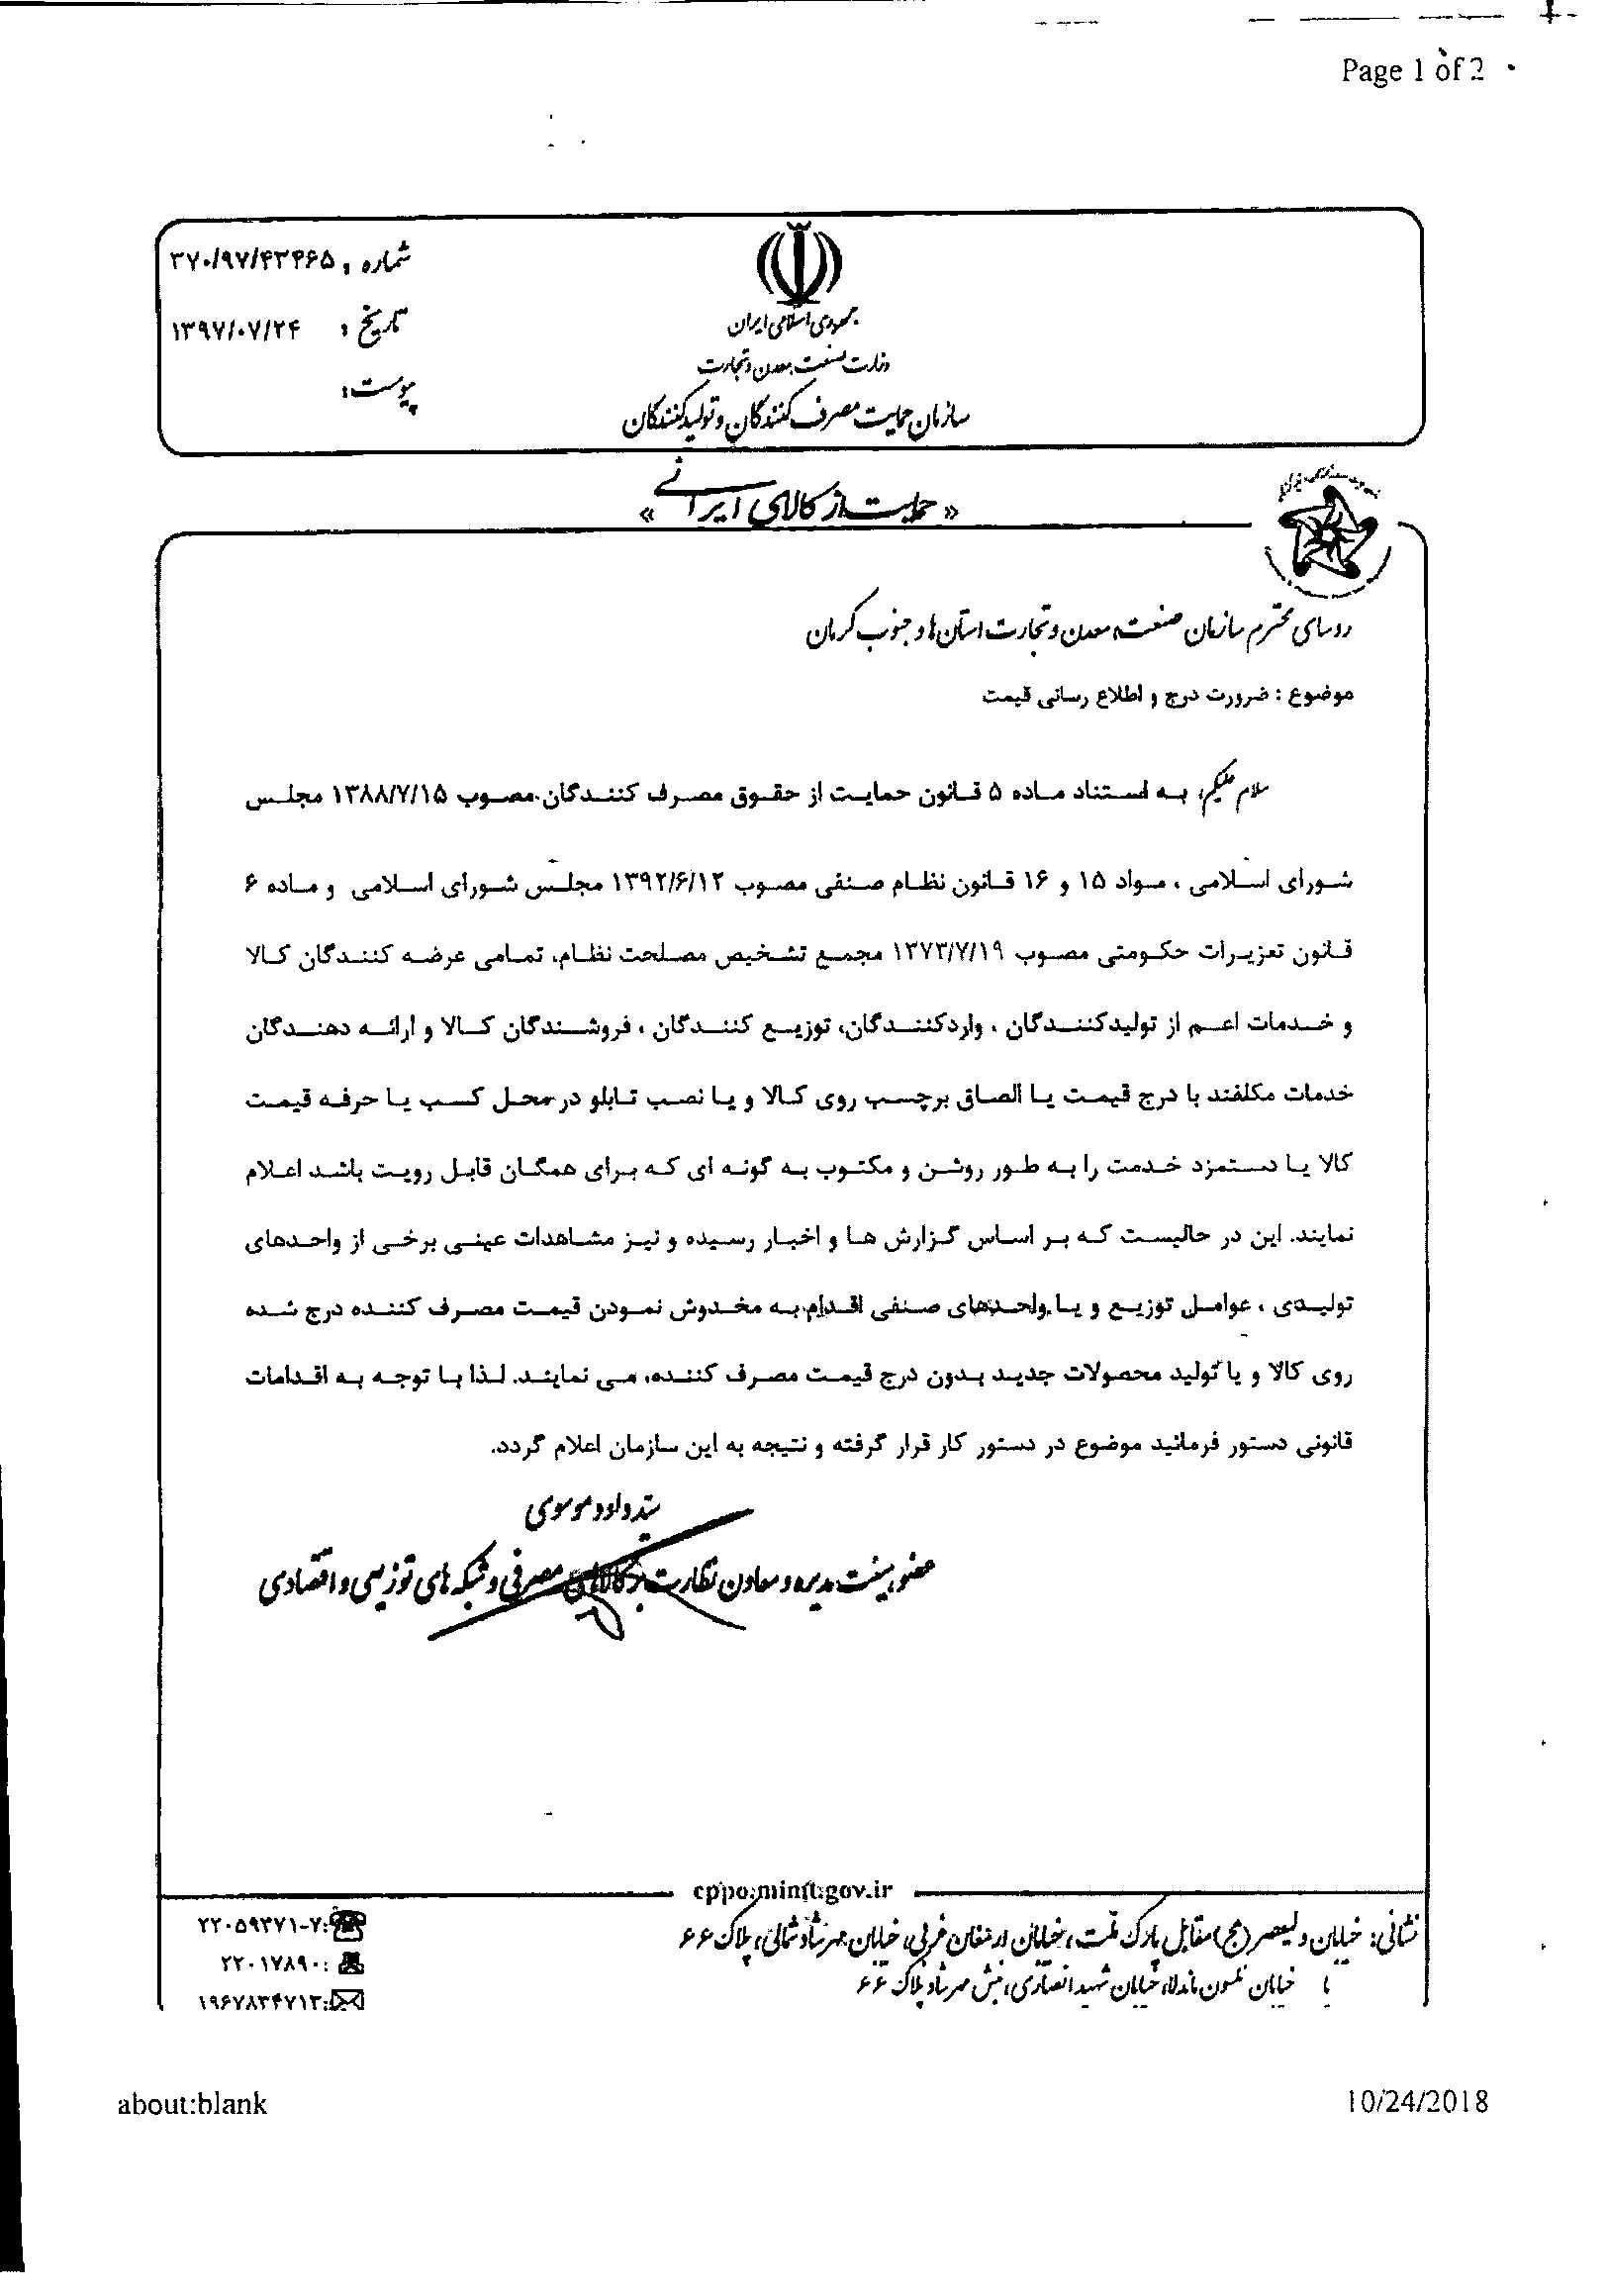 Page 1 of 2
شماره : ۳۷۰/۹۷/۴۳۴۶۵
تاریخ : ۱۳۹۷/۰۷/۲۴
پیوست:
جمهوری اسلامی ایران
وزارت صنعت، معدن و تجارت
سازمان حمایت مصرف کنندگان و تولیدکنندگان
« حمایت از کالای ایرانی »
روسای محترم سازمان صنعت، معدن و تجارت استان ها و جنوب کرمان
موضوع : ضرورت درج و اطلاع رسانی قیمت
سلام علیکم، به استناد ماده ۵ قانون حمایت از حقوق مصرف کنندگان مصوب ۱۳۸۸/۷/۱۵ مجلس
شورای اسلامی ، مواد ۱۵ و ۱۶ قانون نظام صنفی مصوب ۱۳۹۲/۶/۱۲ مجلس شورای اسلامی و ماده ۶
قانون تعزیرات حکومتی مصوب ۱۳۷۳/۷/۱۹ مجمع تشخیص مصلحت نظام، تمامی عرضه کنندگان کالا
و خدمات اعم از تولیدکنندگان ، واردکنندگان، توزیع کنندگان ، فروشندگان کالا و ارائه دهندگان
خدمات مکلفند با درج قیمت یا الصاق برچسب روی کالا و یا نصب تابلو در محل کسب یا حرفه قیمت
کالا یا دستمزد خدمت را به طور روشن و مکتوب به گونه ای که برای همگان قابل رویت باشد اعلام
نمایند. این در حالیست که بر اساس گزارش ها و اخبار رسیده و نیز مشاهدات عینی برخی از واحدهای
تولیدی ، عوامل توزیع و یا واحدهای صنفی اقدام به مخدوش نمودن قیمت مصرف کننده درج شده
روی کالا و یا تولید محصولات جدید بدون درج قیمت مصرف کننده، می نمایند. لذا با توجه به اقدامات
قانونی دستور فرمائید موضوع در دستور کار قرار گرفته و نتیجه به این سازمان اعلام گردد.
سید داود موسوی
عضو هیئت مدیره و معاون نظارت بر کالاهای مصرفی و شبکه های توزیعی و اقتصادی
cppo.mimt.gov.ir
نشانی: خیابان ولیعصر (عج) مقابل پارک ملت، خیابان ارمغان غربی، خیابان مهرشاد شمالی، پلاک ۶۶
یا خیابان نلسون ماندلا، خیابان شهید انصاری، نبش مهرشاد پلاک ۶۶
۲۲۰۵۹۳۷۱-۷:
۲۲۰۱۷۸۹۰:
۱۹۶۷۸۳۴۷۱۳:
about:blank
10/24/2018